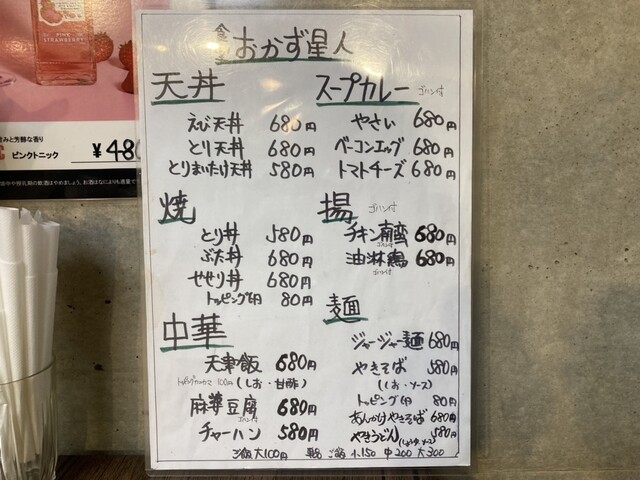 PINK
STRAWBERRY
ピンクトニック ¥480
食堂 おかず星人
天丼
えび天丼 680円
とり天丼 680円
とりまいたけ天丼 580円
焼
とり丼 580円
ぶた丼 680円
せせり丼 680円
トッピング卵 80円
中華
天津飯 680円
100円 (しお・甘酢)
麻婆豆腐 680円
ゴハン付
チャーハン 580円
スープカレー ゴハン付
やさい 680円
ベーコンエッグ 680円
トマトチーズ 680円
揚 ゴハン付
チキン南蛮 680円
ゴハン付
油淋鶏 680円
ゴハン付
麺
ジャージャー麺 680円
やきそば 580円
(しお・ソース)
トッピング卵 80円
あんかけやきそば 680円
やきうどん 580円
ご飯大100円 単品 ご飯 小150 中200 大300